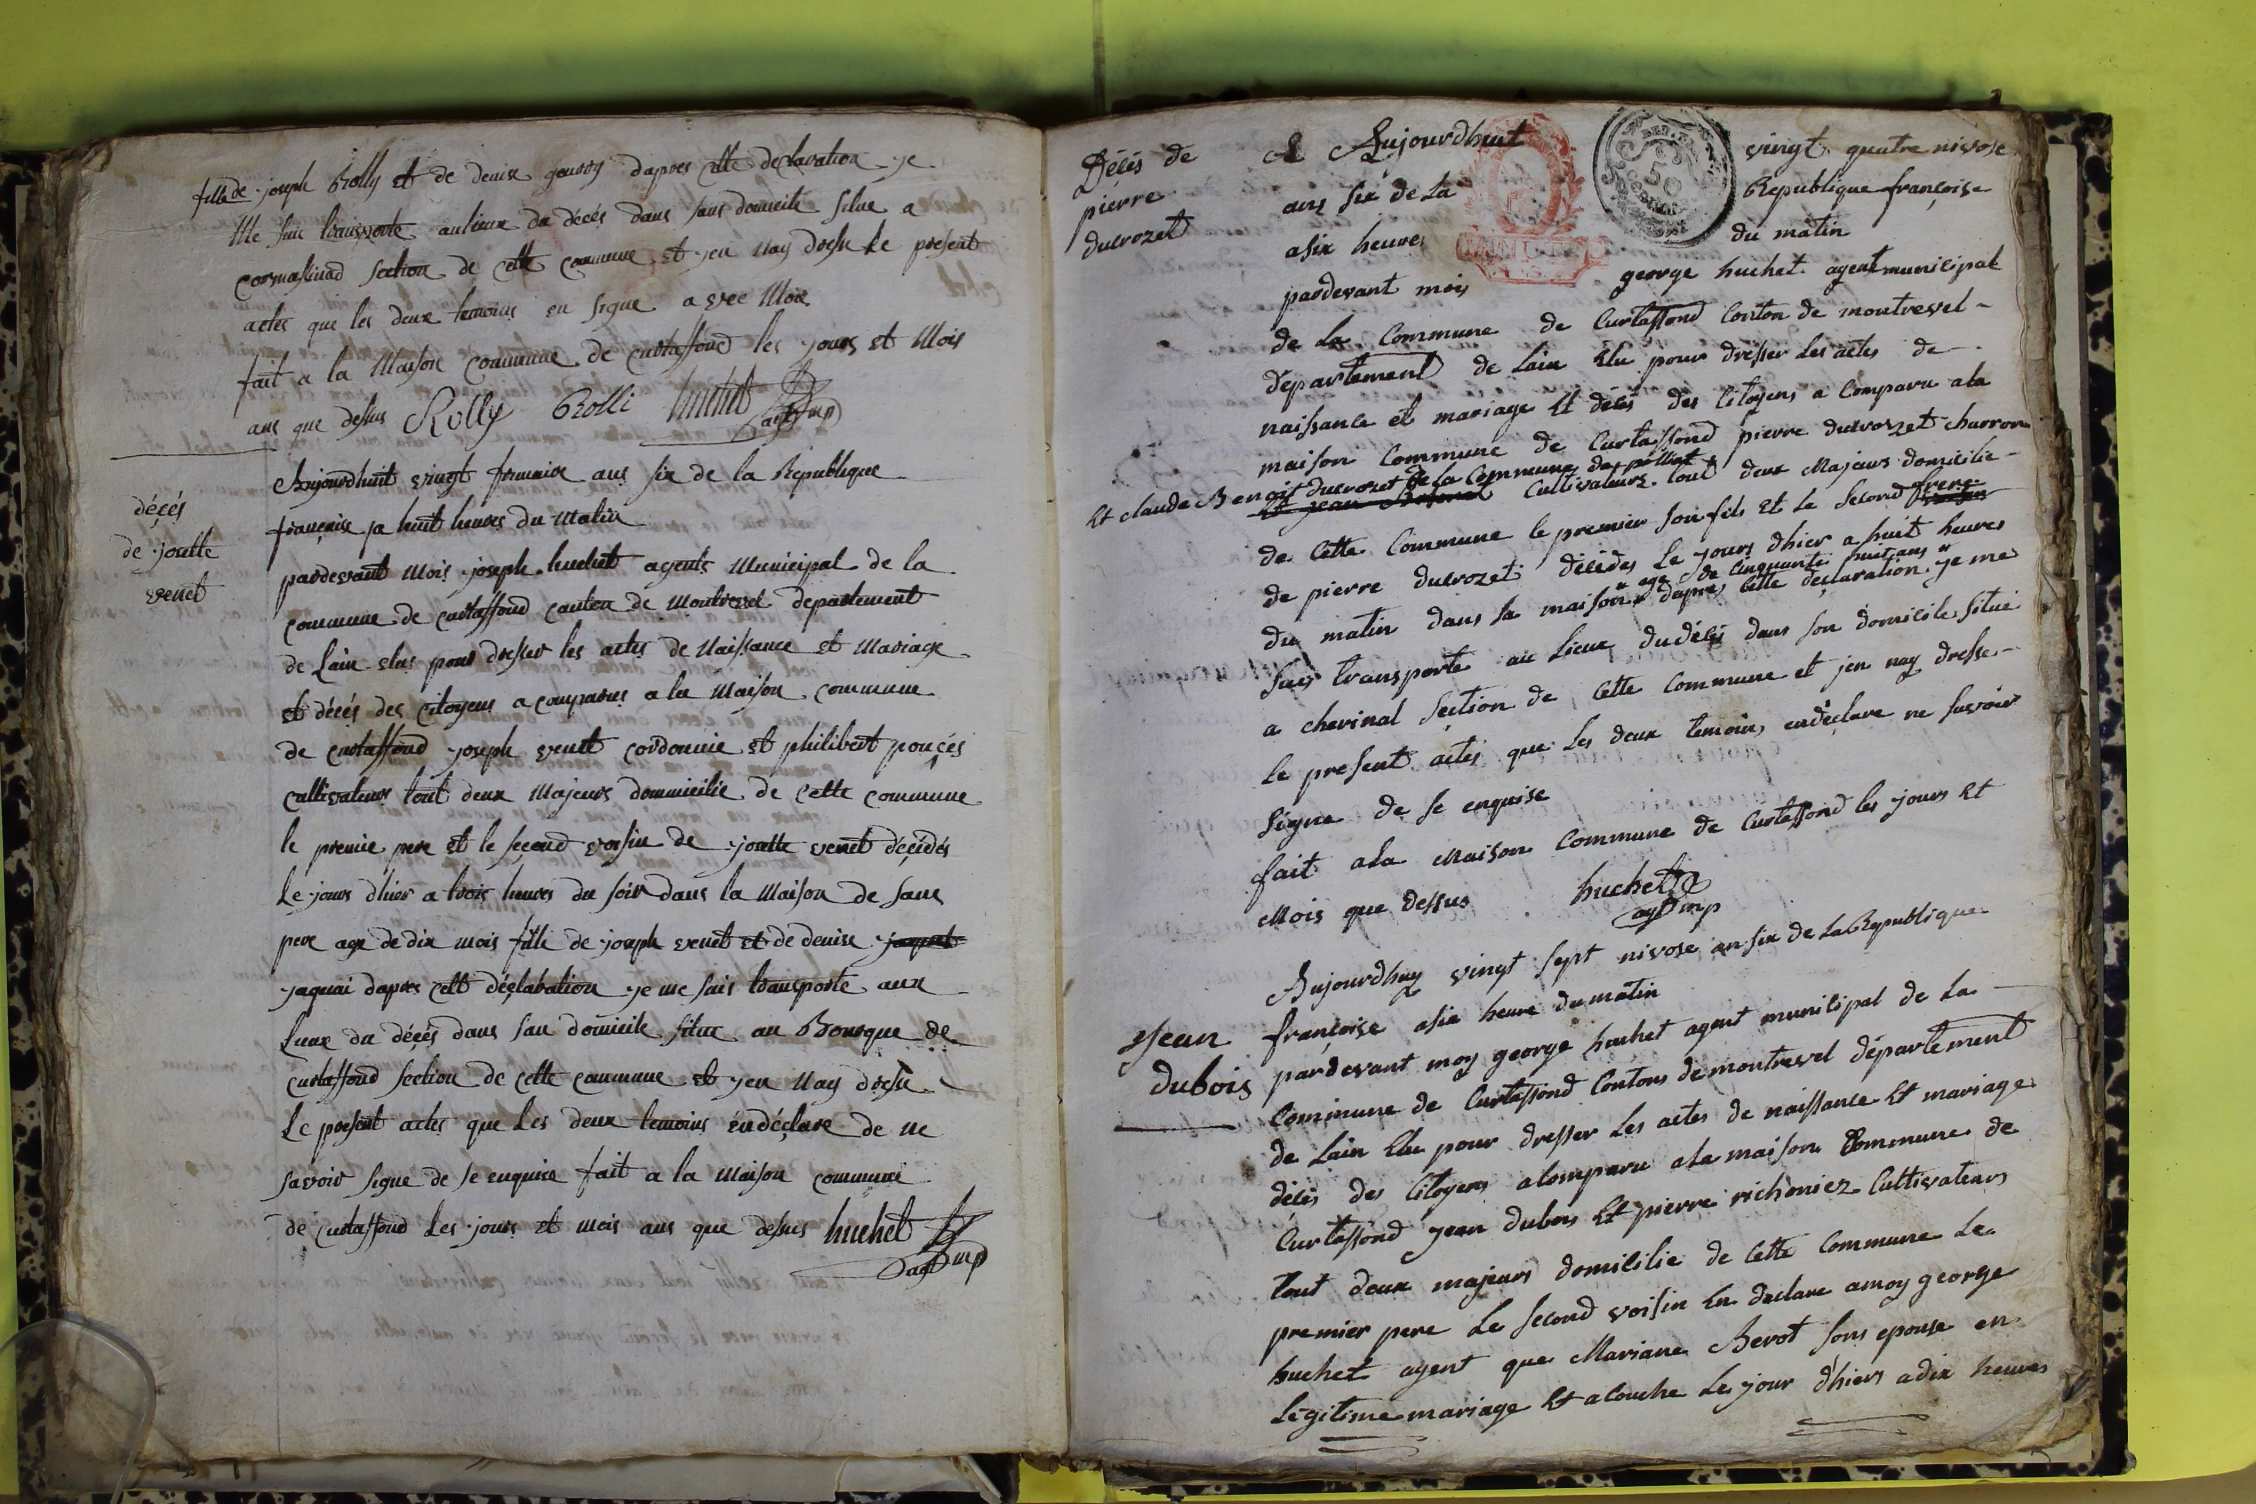 fille de joseph Rolly et de denise gouvoy dapres cette declaration je
Me suis transporte aulieux du décés dans sans domicile situe a
Cormassinad section de cette commune et jen nay dresse le present
actes que les deux temoins on signe avec Moi
fait a la Maison commune de curtaffond les jours et Mois
ans que dessus Rolly Rolli huchet agt mp
décés
de joutte
venet
Aujourdhuit vingt frimaire ans six de la Republique
françoise a huit heures du Matin
pardevant Mois joseph huchet agents Municipal de la
commune de curtaffond canton de Montrevel departement
de Lain elus pour dresser les actes de Naissance et Mariage
et décés des citoyens a comparus a la Maison commune
de curtaffond joseph venet cordonnie et philibert ponçés
cultivateurs tout deux Majeurs dommicilie de cette commune
le premie pere et le second voisin de joutte venet décidés
Le jours dhier a trois heures du soir dans la Maison de sans
pere age de dix mois fille de joseph venet et de denise jaquet
jaquai dapres cett déclaration je me suis transporte aux
Lieux du décés dans san domicile situe au Bourgue de
curtaffond section de cette commune et jen Nay dresse
Le present actes que Les deux temoins endéclare de ne
savoir signe de se enquise fait a la Maison commune
de curtaffond Les jours et mois ans que dessus huchet
agt mp
Décés de
pierre
ducrozet
Aujourdhuit vingt quatre nivose
ans six de La Republique françoise
asix heures du matin
pardevant mois george huchet agent municipal
de La Commune de Curtaffond Conton de montrevel
département de Lain Elu pour dresser Les actes de
naissance et mariage Et décés des Citoyens a Comparu ala
maison Commune de Curtaffond pierre ducrozet charron
Et claude Benoit ducrozet de La Commune de polliat
Et jean Cultivateurs tout deux Majeurs domicilie
de Cette Commune le premier son fils Et Le second frere
de pierre ducrozet décides Le jours dhier a huit heures
age de cinquante huit ans
du matin dans sa maison dapres Cette declaration je me
suis transporte au Lieux du décés dans son domicile situé
a cherinal section de Cette Commune et jen nay dresse
Le present actes que Les deux temoins endéclare ne savoir
signe de se enquise
fait ala Maison Commune de Curtaffond les jours Et
Mois que dessus huchet
agt mp
Jean
dubois
Aujourdhuy vingt sept nivose an six de La Republique
françoise asix heure du matin
pardevant moy george huchet agent municipal de La
Commune de Curtaffond Contons de montrevel département
de Lain Elu pour dresser Les actes de naissance Et mariage
décés des Citoyens a Comparu ala maison Commune de
Curtaffond jean dubois Et pierre richoniez Cultivateurs
tout deux majeurs domicilie de Cette Commune Le
premier pere Le second voisin En declare amoy george
huchet agent que Mariane Berot sons epouse en
Légitime mariage Et a Couche Le jour dhiers adix heures